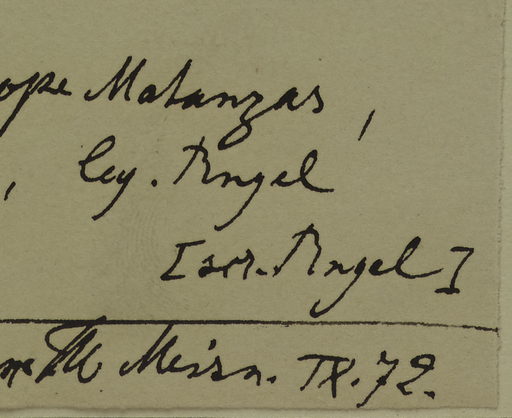 ope Matanzas,
, leg. Rugel
[scr. Rugel]
Meissn. IX. 72.